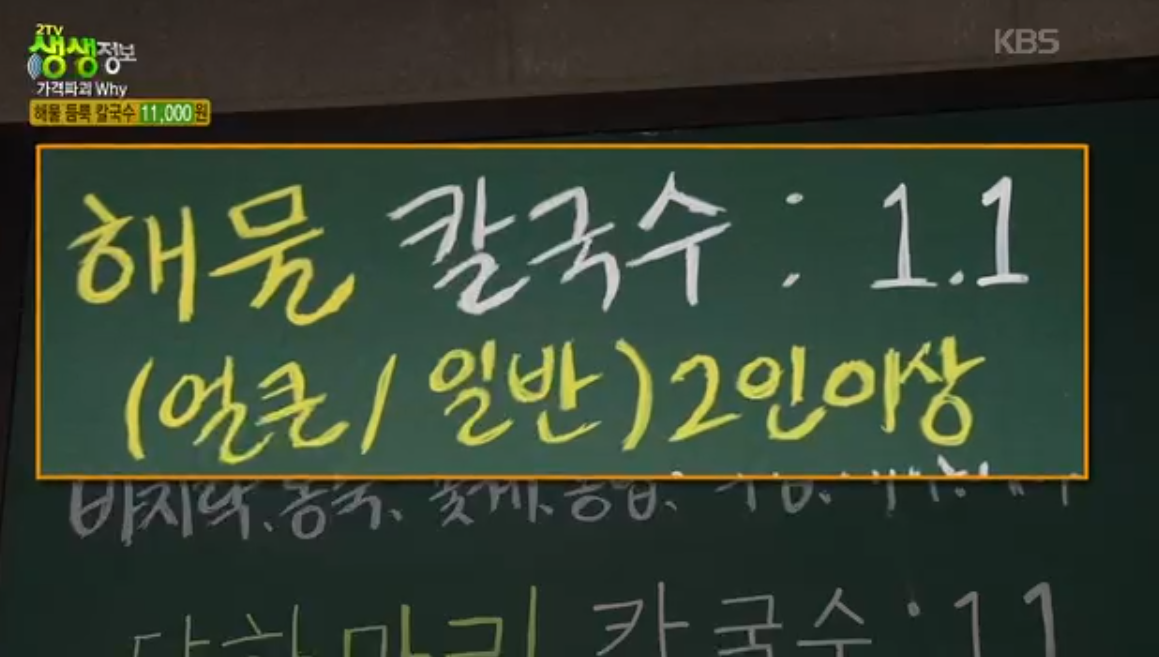 2TV
생생정보
KBS
가격파괴 Why
해물 듬뿍 칼국수 11,000원
해물 칼국수 : 1.1
(얼큰/일반)2인이상
바지락, 동죽, 꽃게,
칼국수 : 1.1